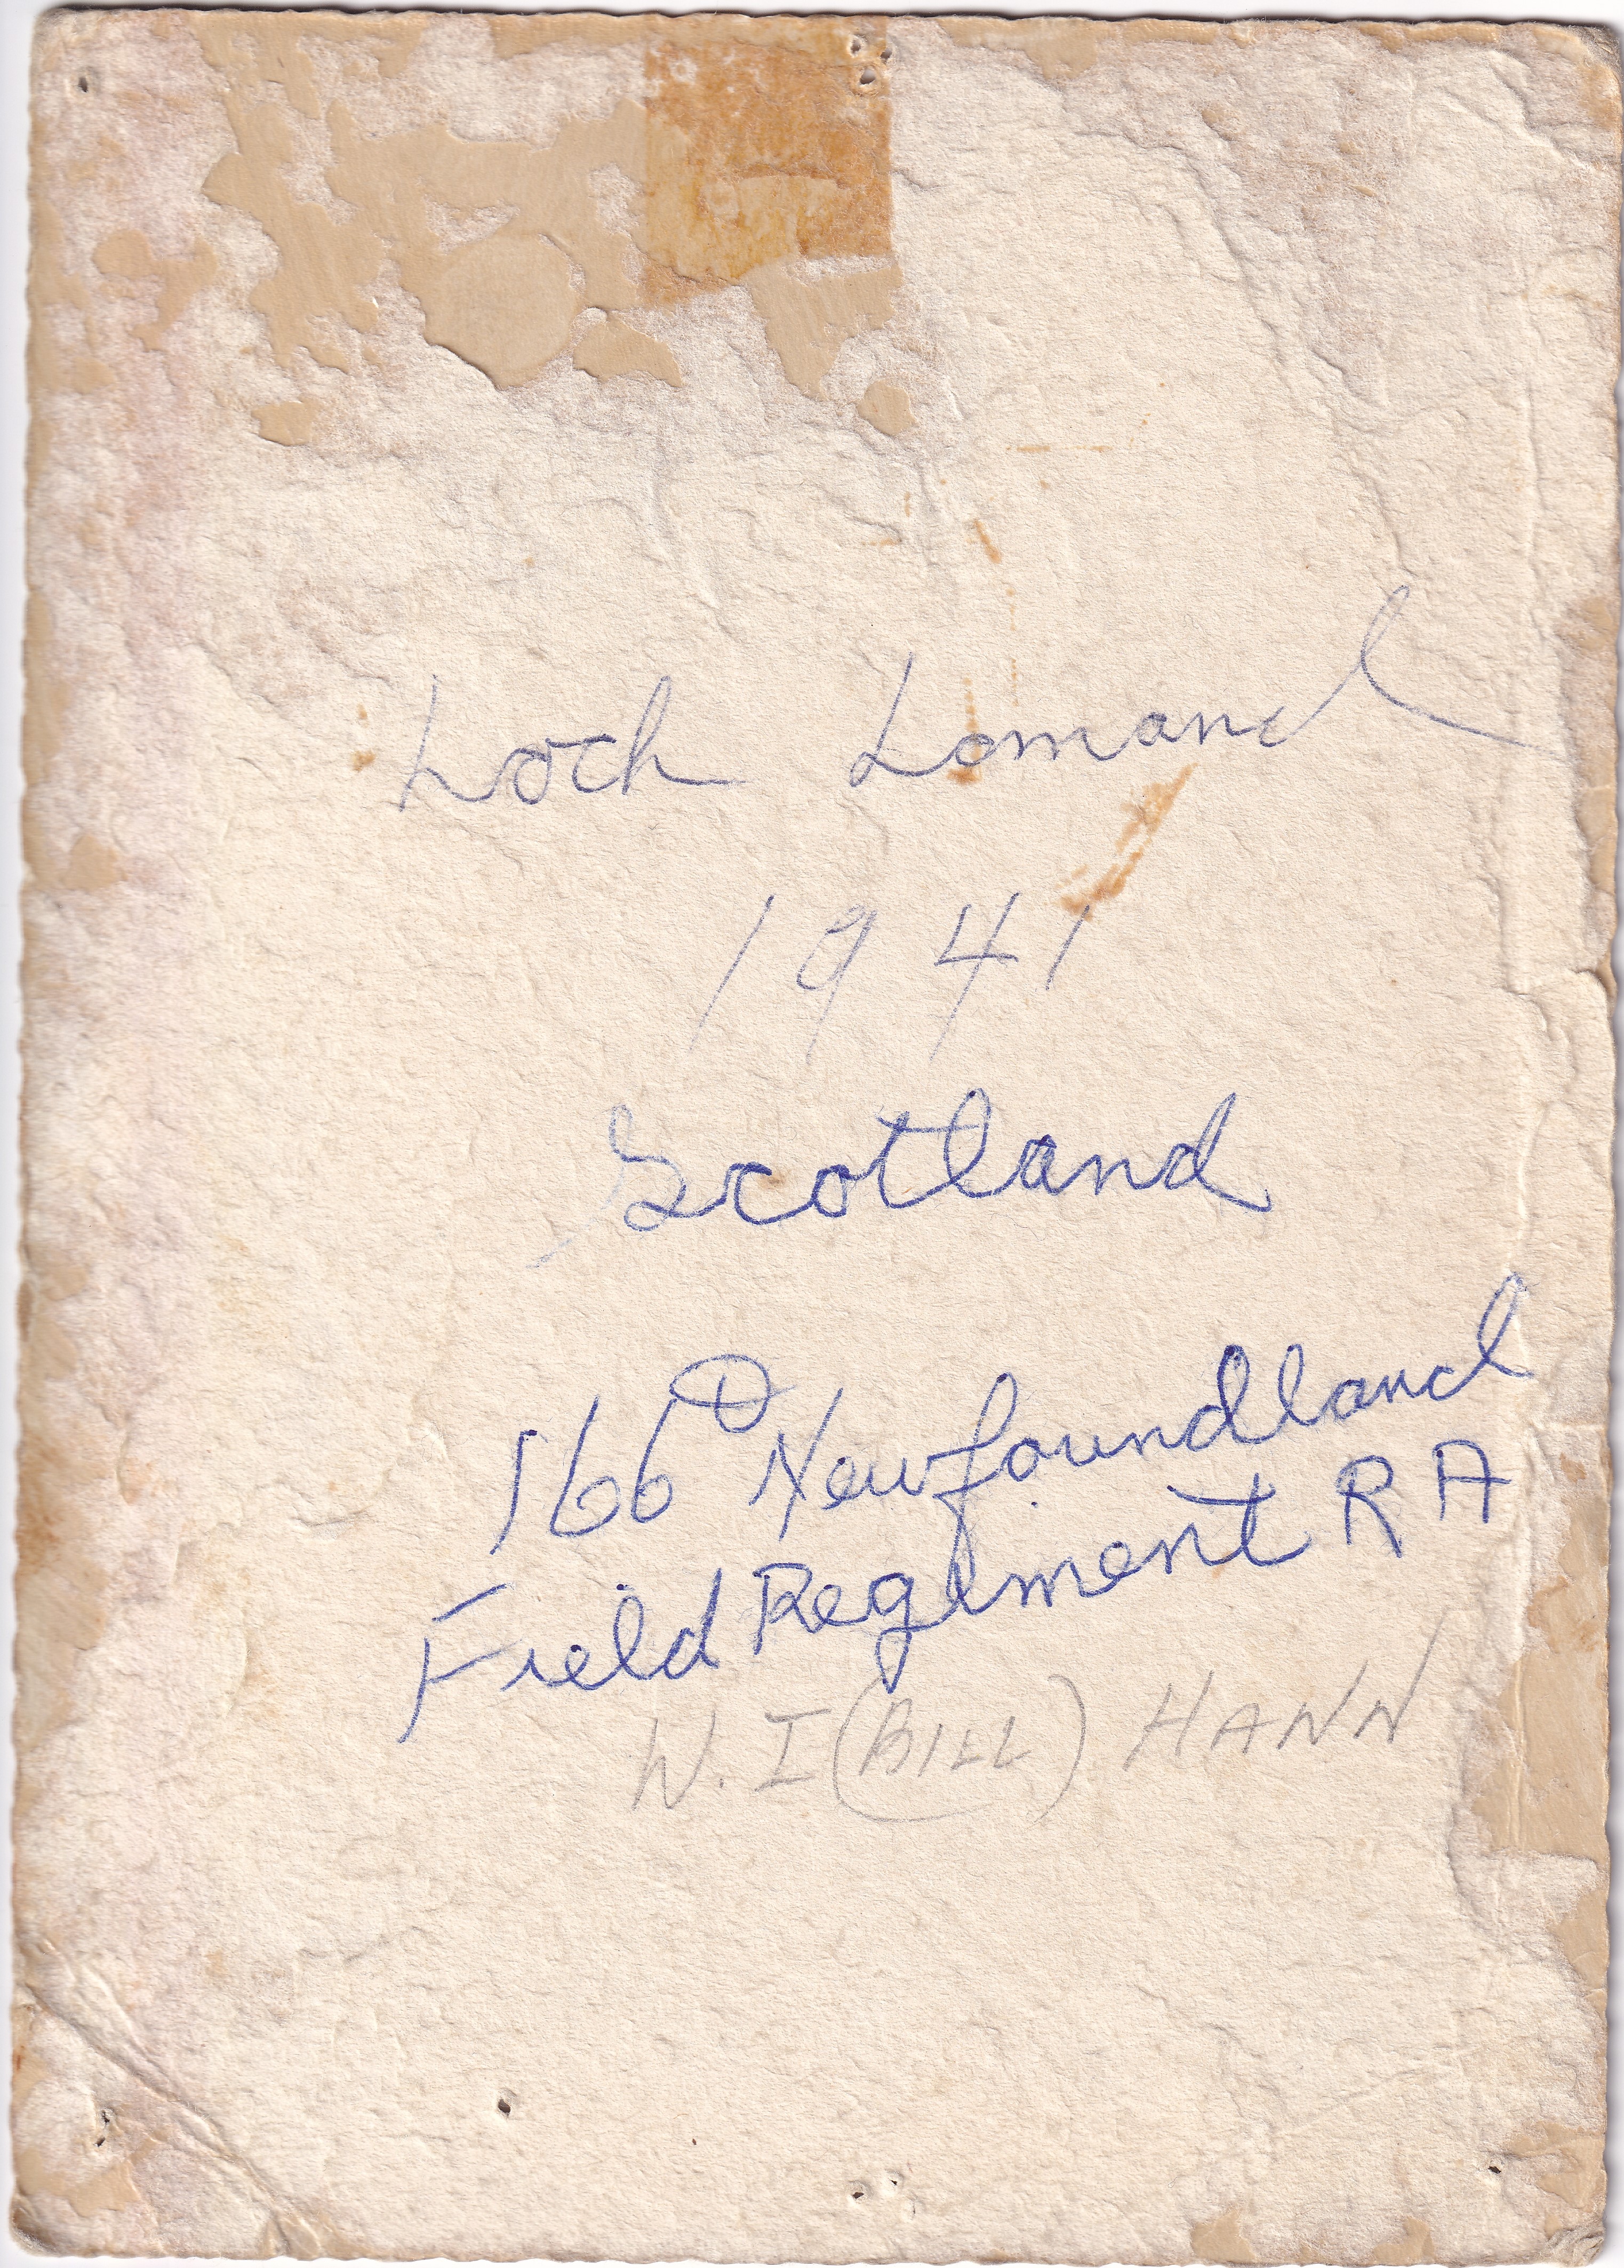 Loch Lomand
1941
Scotland
166 Newfoundland
Field Regiment R A
W. I (BILL) HANN